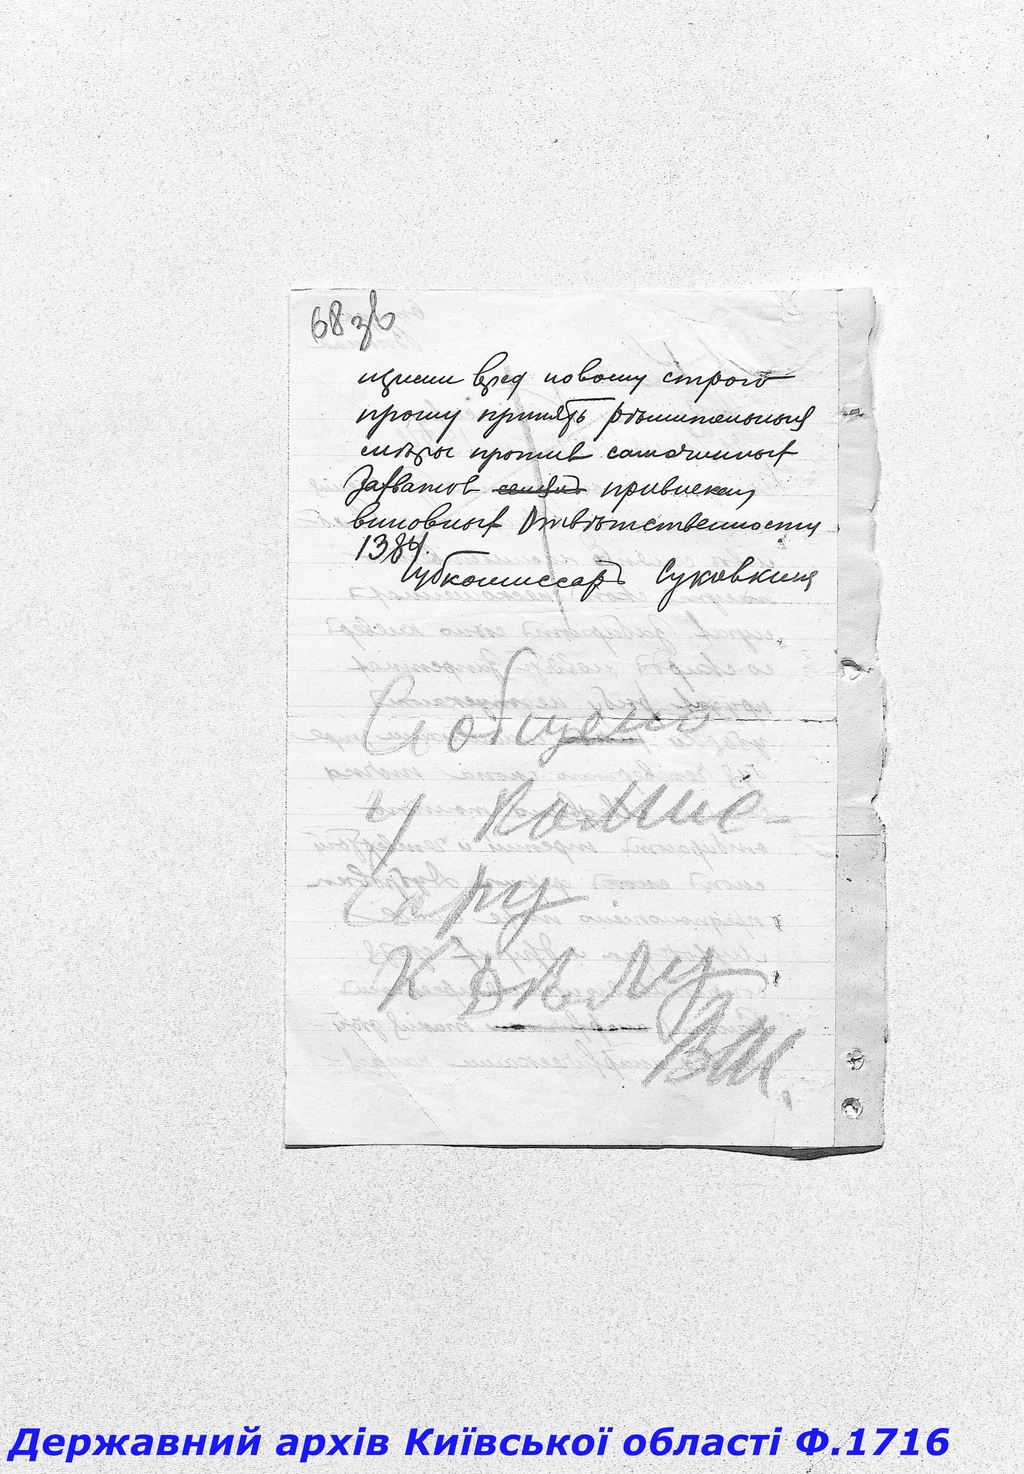 68 зв
вред новому строю
прошу принять рѣшительныя
мѣры против самочинных
Захватов привлекая
виновных Отвѣтственности
1384.
Губкомиссаръ Суковкинъ
Сообщено
Комис-
сару
В.М.
Державний архів Київської області Ф.1716